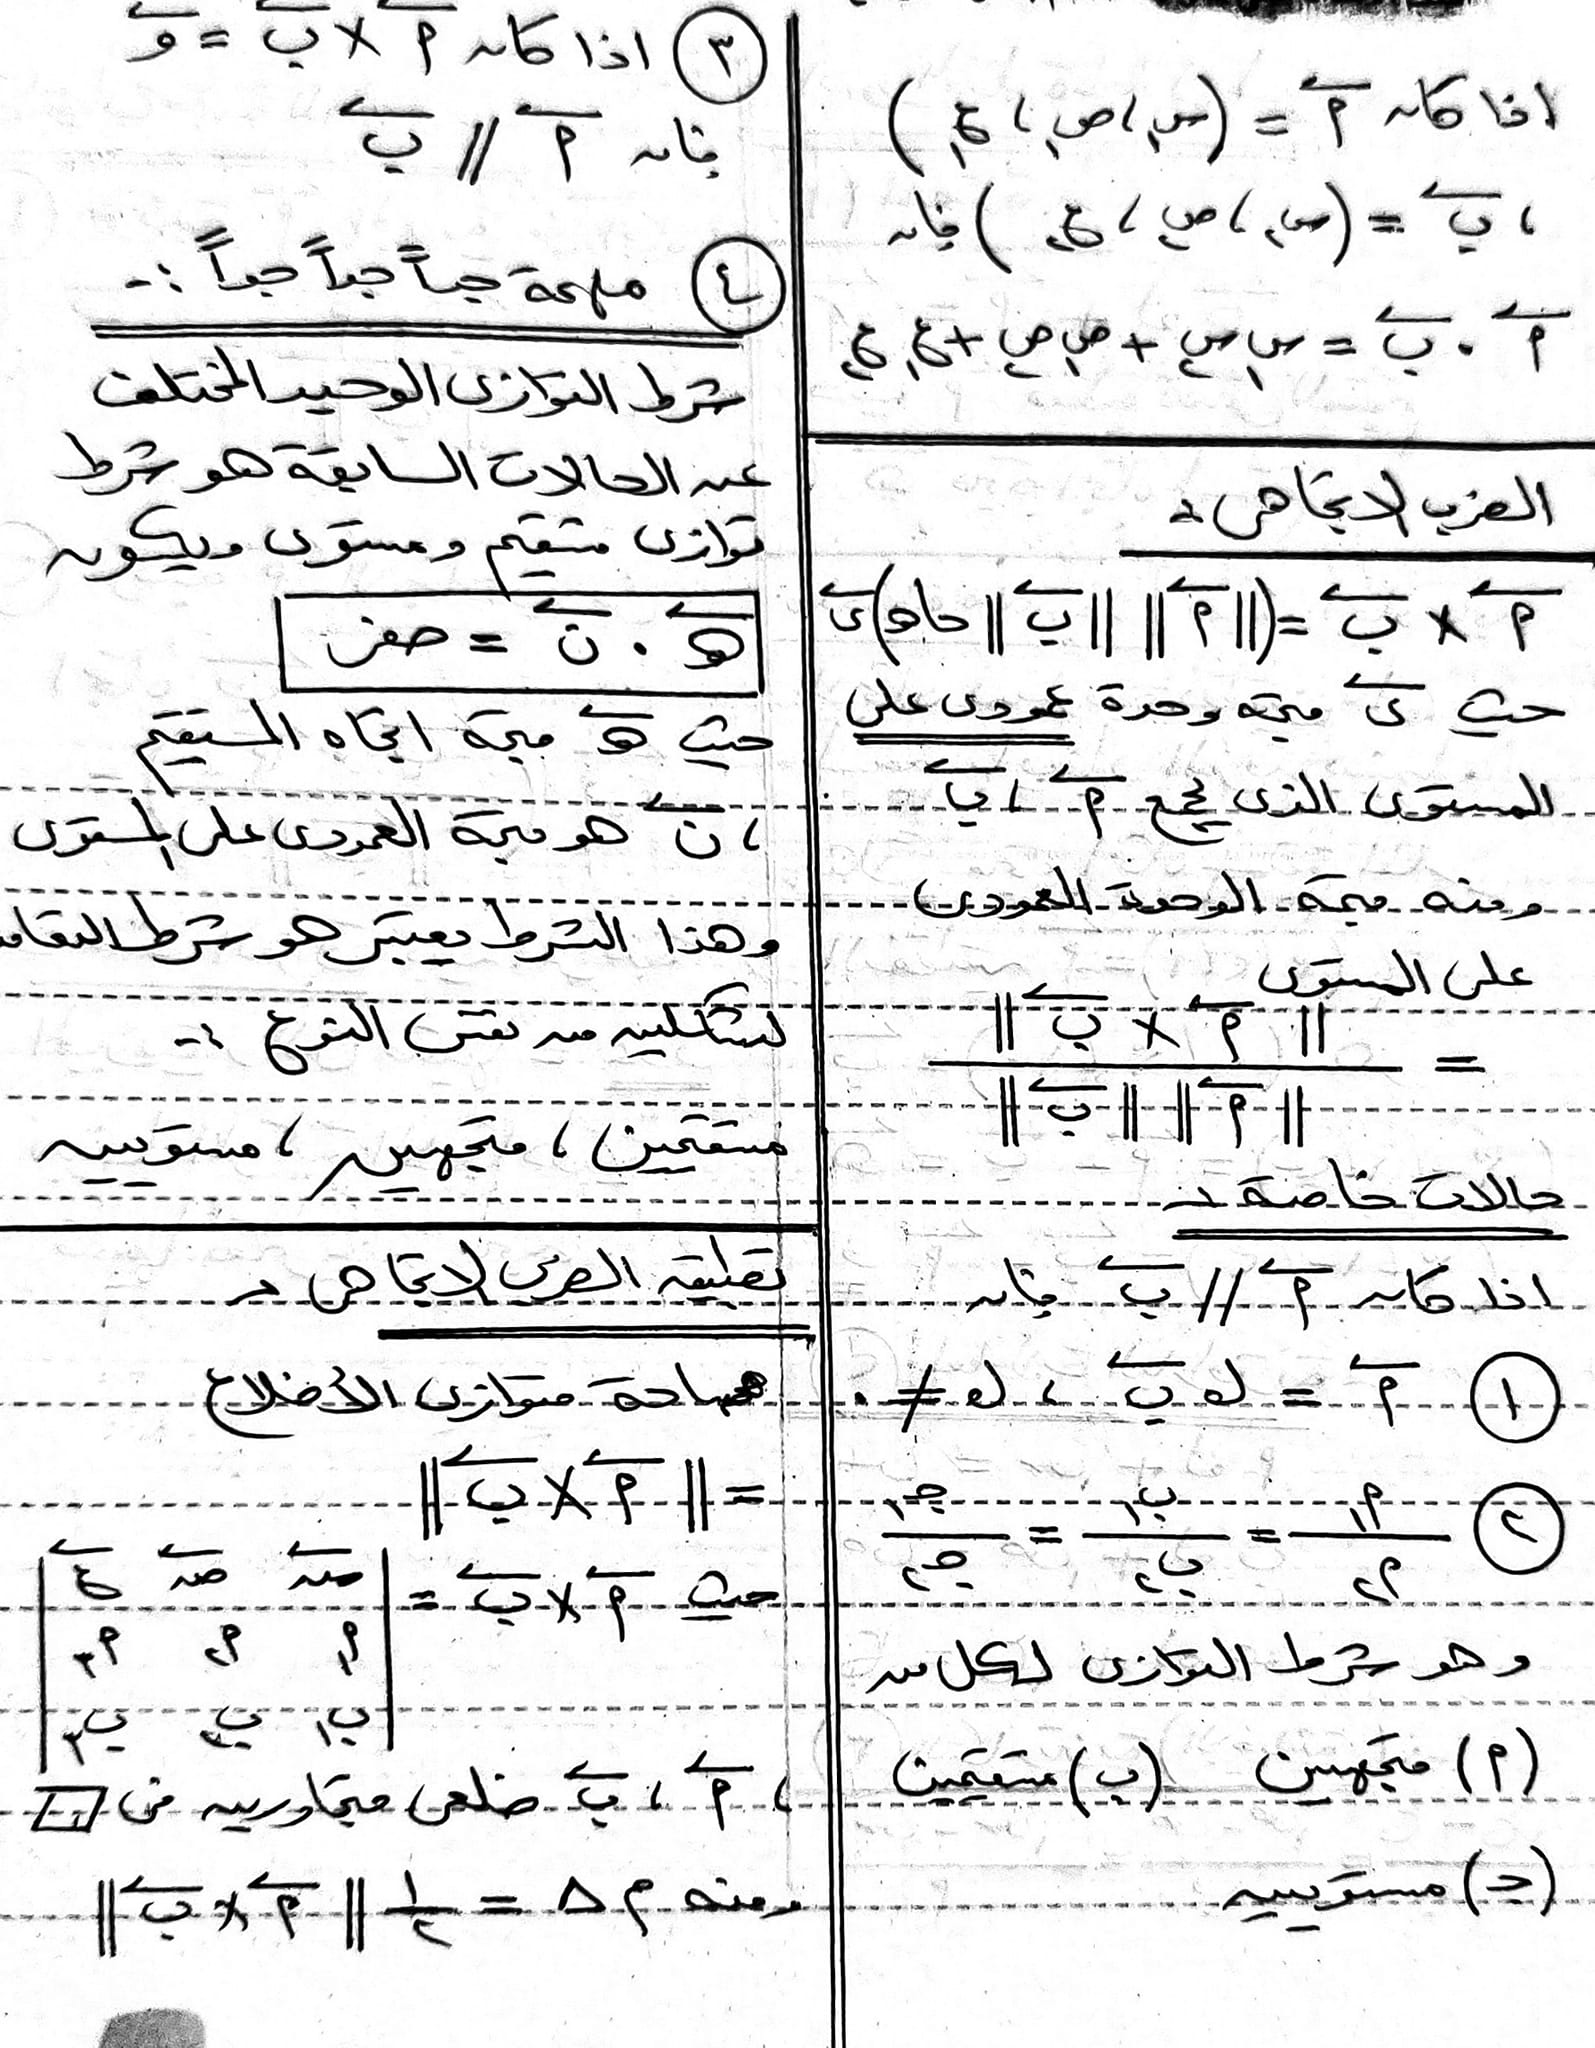 اذا كان أ = (س١ ، ص١ ، ع١)
، ب = (س٢ ، ص٢ ، ع٢) فإن
أ . ب = س١ س٢ + ص١ ص٢ + ع١ ع٢
الضرب الاتجاهى :
أ × ب = (||أ|| ||ب|| حا ه) ى
حيث ى متجه وحدة عمودى على
المستوى الذى يجمع أ ، ب
ومنه متجه الوحدة العمودى
على المستوى
= ||أ × ب|| / ||أ|| ||ب||
حالات خاصة :-
اذا كان أ // ب فإن
① أ = ك ب ، ك ≠ ٠
② أ١/أ٢ = ب١/ب٢ = جـ١/جـ٢
وهو شرط التوازى لكل من
(أ) متجهين (ب) مستقيمين
(جـ) مستويين
③ اذا كان أ × ب = و
فإن أ // ب
④ ملهمة جداً جداً جداً :-
شرط التوازى الوحيد المختلف
عن الحالات السابقة هو شرط
توازى مستقيم ومستوى ويكون
ه . ن = صفر
حيث ه متجة اتجاه المستقيم
، ن هو متجة العمودى على المستوى
وهذا الشرط يعتبر هو شرط التعامد
لشكلين من نفس النوع :-
مستقيمين ، متجهين ، مستويين
تطبيق الضرب الاتجاهى :-
مساحة متوازى الأضلاع
= ||أ × ب||
حيث أ × ب = | س ص ع
أ١ أ٢ أ٣
ب١ ب٢ ب٣ |
، أ ، ب ضلعى متجاورين فى ▱
ومنه م Δ = ١/٢ ||أ × ب||